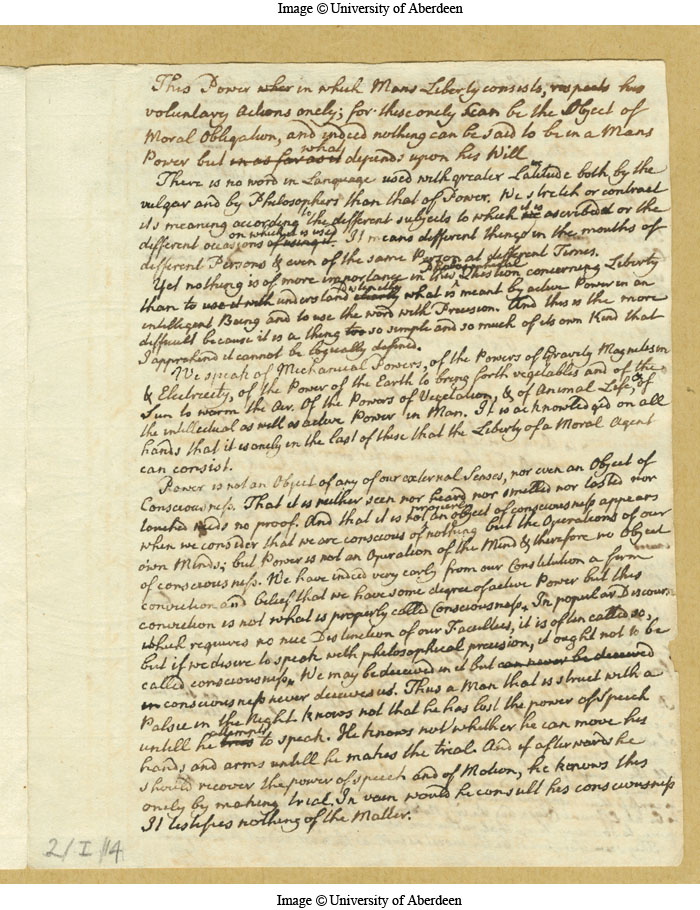 Image © University of Aberdeen
This Power wher in which Mans Liberty consists, respects his
voluntary Actions onely; for these onely can be the Object of
Moral Obligation, and indeed nothing can be said to be in a Mans
Power but in as far as it what depends upon his Will
There is no word in Language used with greater Latitude both by the
vulgar and by Philosophers than that of Power. We stretch or contract
its meaning according to the different subjects to which it is ascribed or the
different occasions of using it. on which it is used It means different things in the mouths of
different Persons & even of the same Person at different Times.
Yet nothing is of more importance in this Question concerning Liberty
than to use it with understand clearly distinctly what is meant by active Power in an
intelligent Being and to use the word with Precision. And this is the more
difficult because it is a thing too so simple and so much of its own Kind that
I apprehend it cannot be logically defined.
We speak of Mechanical Powers, of the Powers of Gravity Magnetism
& Electricity, of the Power of the Earth to bring forth vegetables and of the
Sun to warm the Air. Of the Powers of Vegetation, & of Animal Life, & of
the intellectual as well as active Power in Man. It is acknowledged on all
hands that it is onely in the last of these that the Liberty of a Moral Agent
can consist.
Power is not an Object of any of our external Senses, nor even an Object of
Consciousness. That it is neither seen nor heard nor smelled nor tasted nor
touched needs no proof. And that it is not properly an object of consciousness appears
when we consider that we are conscious of nothing but the Operations of our
own Minds; but Power is not an Operation of the Mind & therefore no Object
of consciousness. We have indeed very early from our Constitution a firm
conviction and belief that we have some degree of active Power but this
conviction is not what is properly called Consciousness. In popular Discourse
which requires no nice Distinction of our Faculties, it is often called so,
but if we desire to speak with philosophical precision, it ought not to be
called consciousness. We may be deceived in it but can never be deceived
in consciousness never deceives us. Thus a Man that is struck with a
Palsie in the Night knows not that he has lost the power of Speech
untill he tries attempts to speak. He knows not whether he can move his
hands and arms untill he makes the trial. And if afterwards he
should recover the power of speech and of Motion, he knows this
onely by making trial. In vain would he consult his consciousness
It testifies nothing of the Matter.
2/I/14
Image © University of Aberdeen